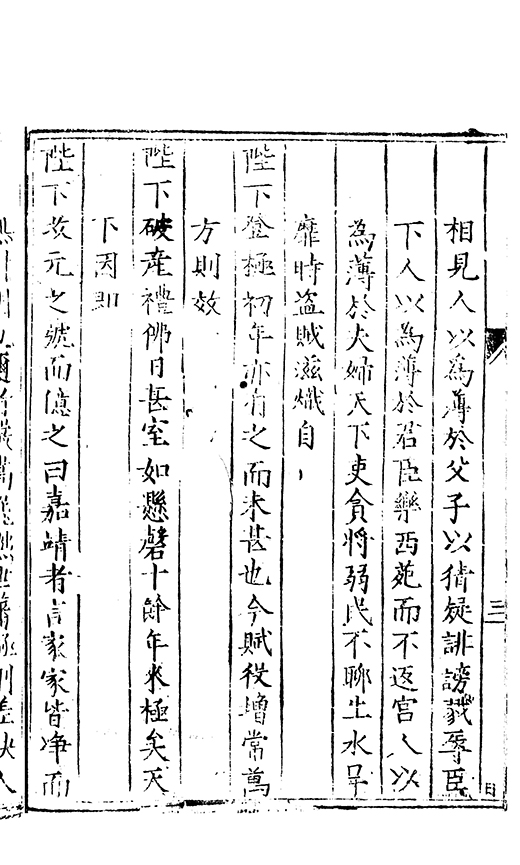 三
相見人以為薄於父子以猜疑誹謗戮辱臣
下人以為薄於君臣樂西苑而不返宮人以
為薄於夫婦天下吏貪將弱民不聊生水旱
靡時盗賊滋熾自
陛下登極初年亦有之而未甚也今賦役増常萬
方則效
陛下破產禮佛日甚室如懸磬十餘年來極矣天
下因即
陛下改元之號而億之曰嘉靖者言家家皆净而